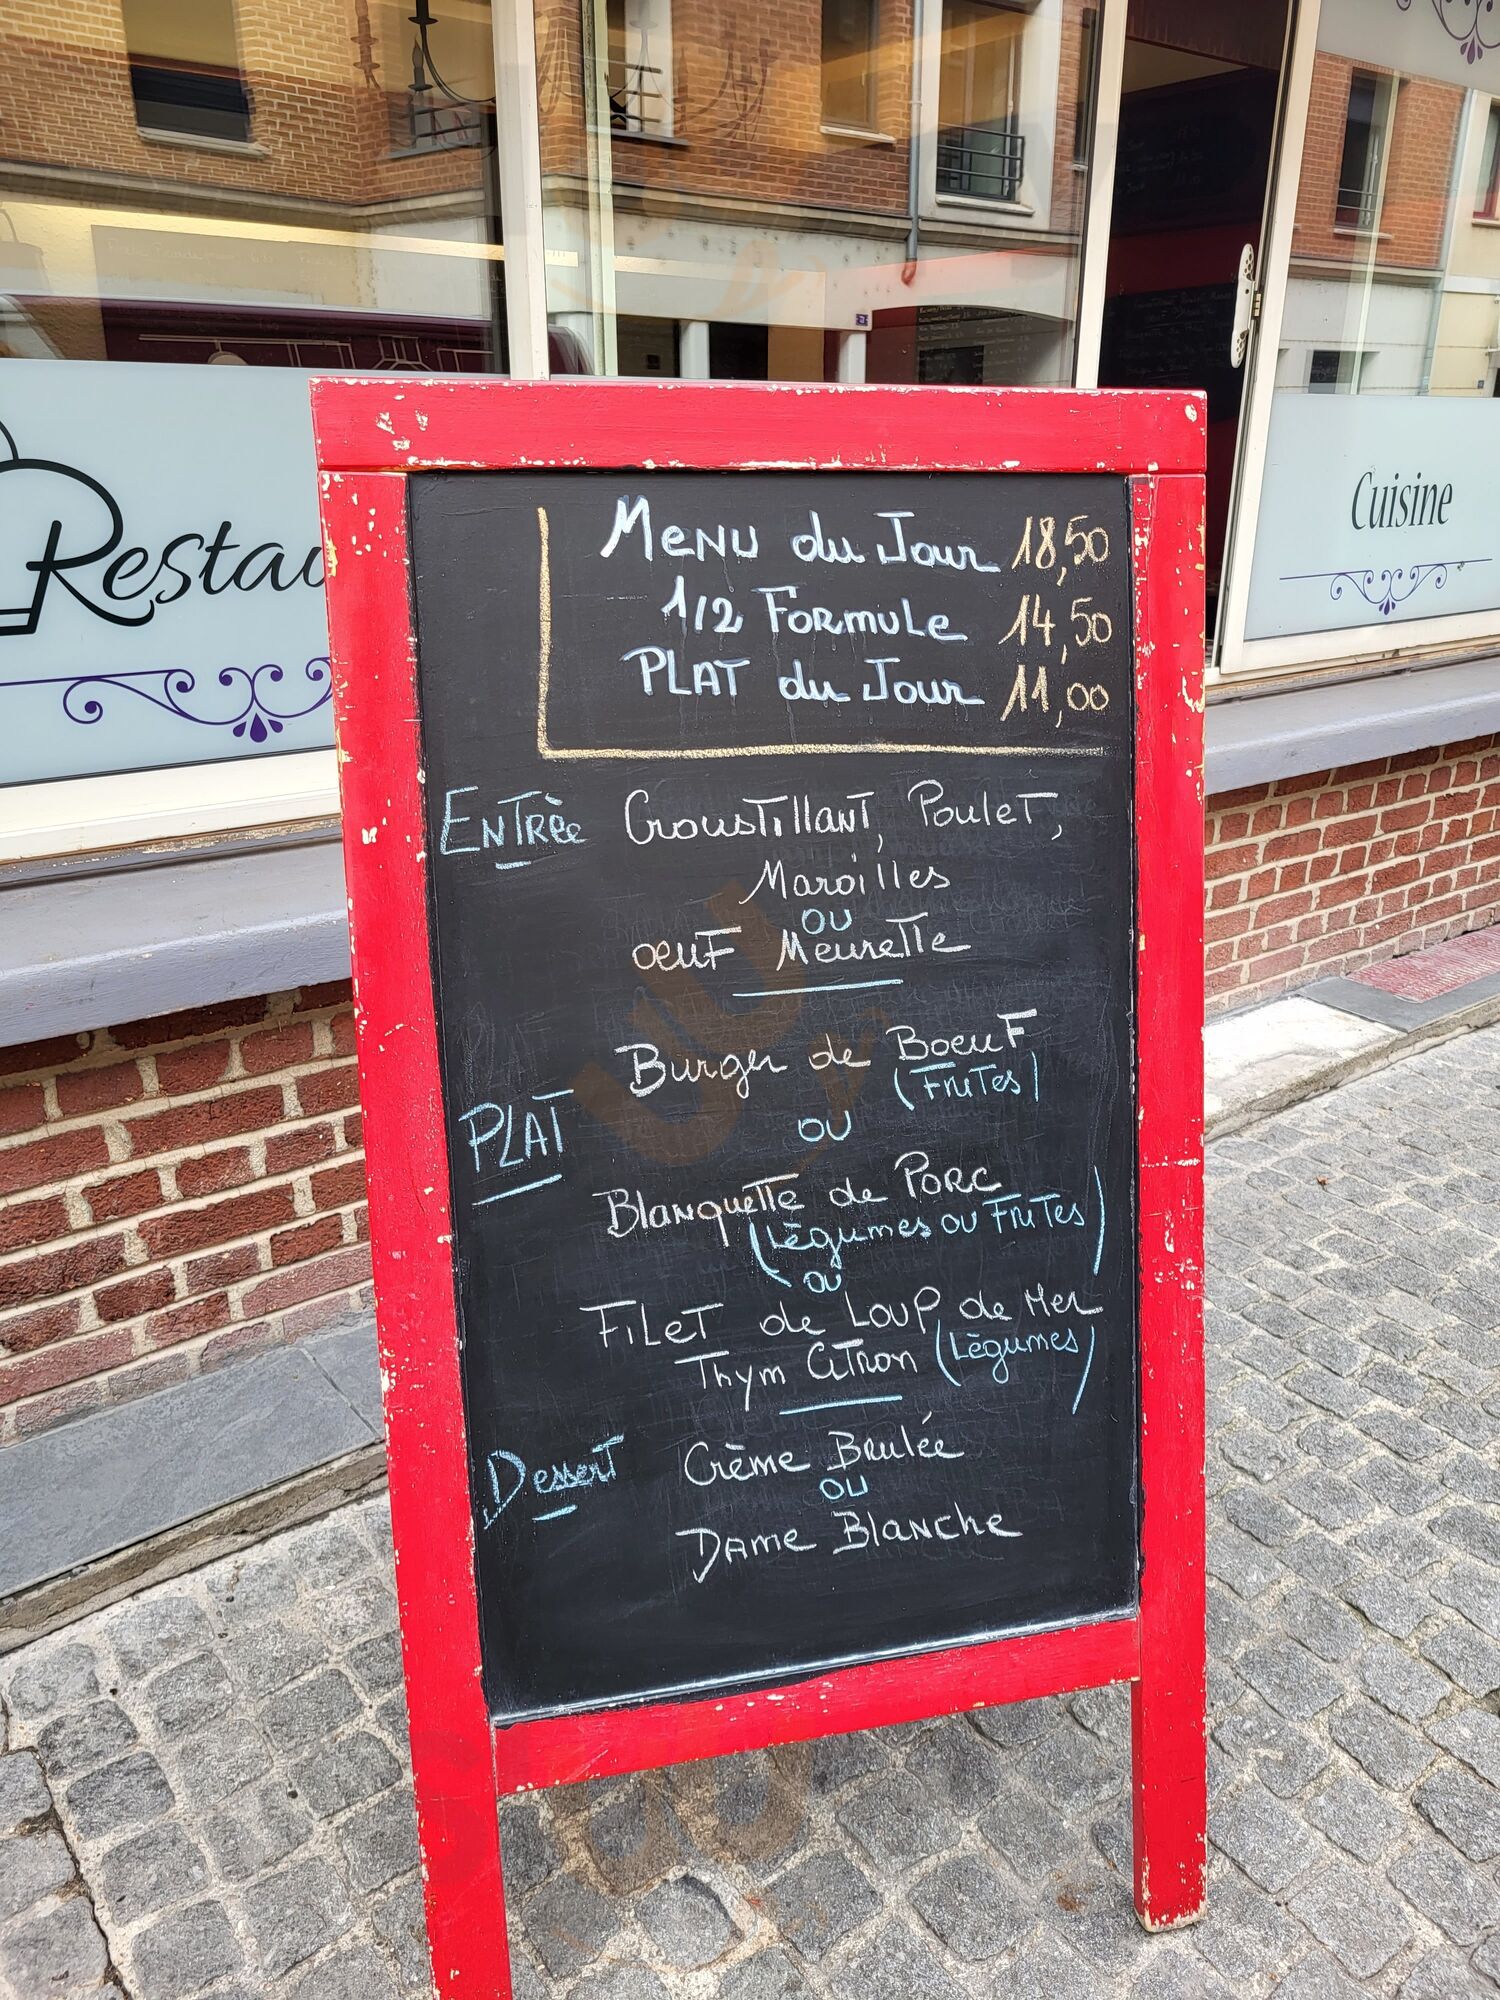 Restau
Cuisine
Menu du Jour 18,50
1/2 Formule 14,50
PLAT du Jour 11,00
Entrée Croustillant, Poulet,
Maroilles
ou
oeuf Meurette
Burger de Boeuf
(Frites)
PLAT
ou
Blanquette de Porc
(Légumes ou Frites)
ou
Filet de Loup de Mer
Thym Citron (Légumes)
Dessert Crème Brulée
ou
Dame Blanche